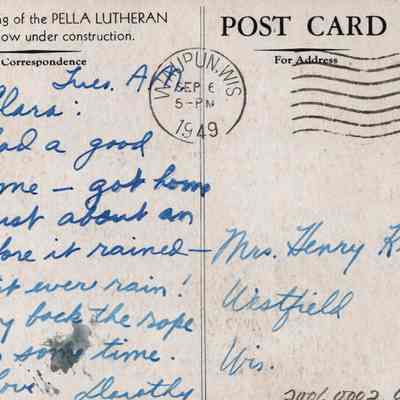 ng of the PELLA LUTHERAN
ow under construction.
Correspondence
POST CARD
For Address
WAUPUN, WIS
SEP 6
5-PM
1949
Tues. A.M.
Clara:
had a good
me - got home
ust about an
fore it rained -
it ever rain!
y back the rope
some time.
Love Dorothy
Mrs. Henry K
Westfield
Wis.